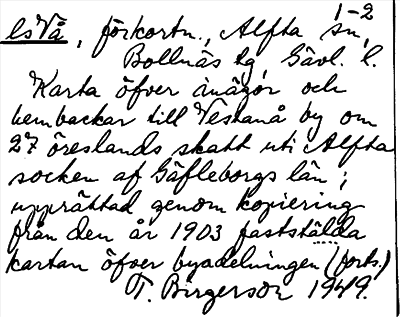 1-2
lsVå, förkortn., Alfta sn,
Bollnäs tg, Gävl. l.
Karta öfver inägor och
hembackar till Vestanå by om
27 öreslands skatt uti Alfta
socken af Gäfleborgs län;
upprättad genom kopiering
från den år 1903 fastställda
kartan öfver byadelningen (forts.)
T. Birgerson 1949.